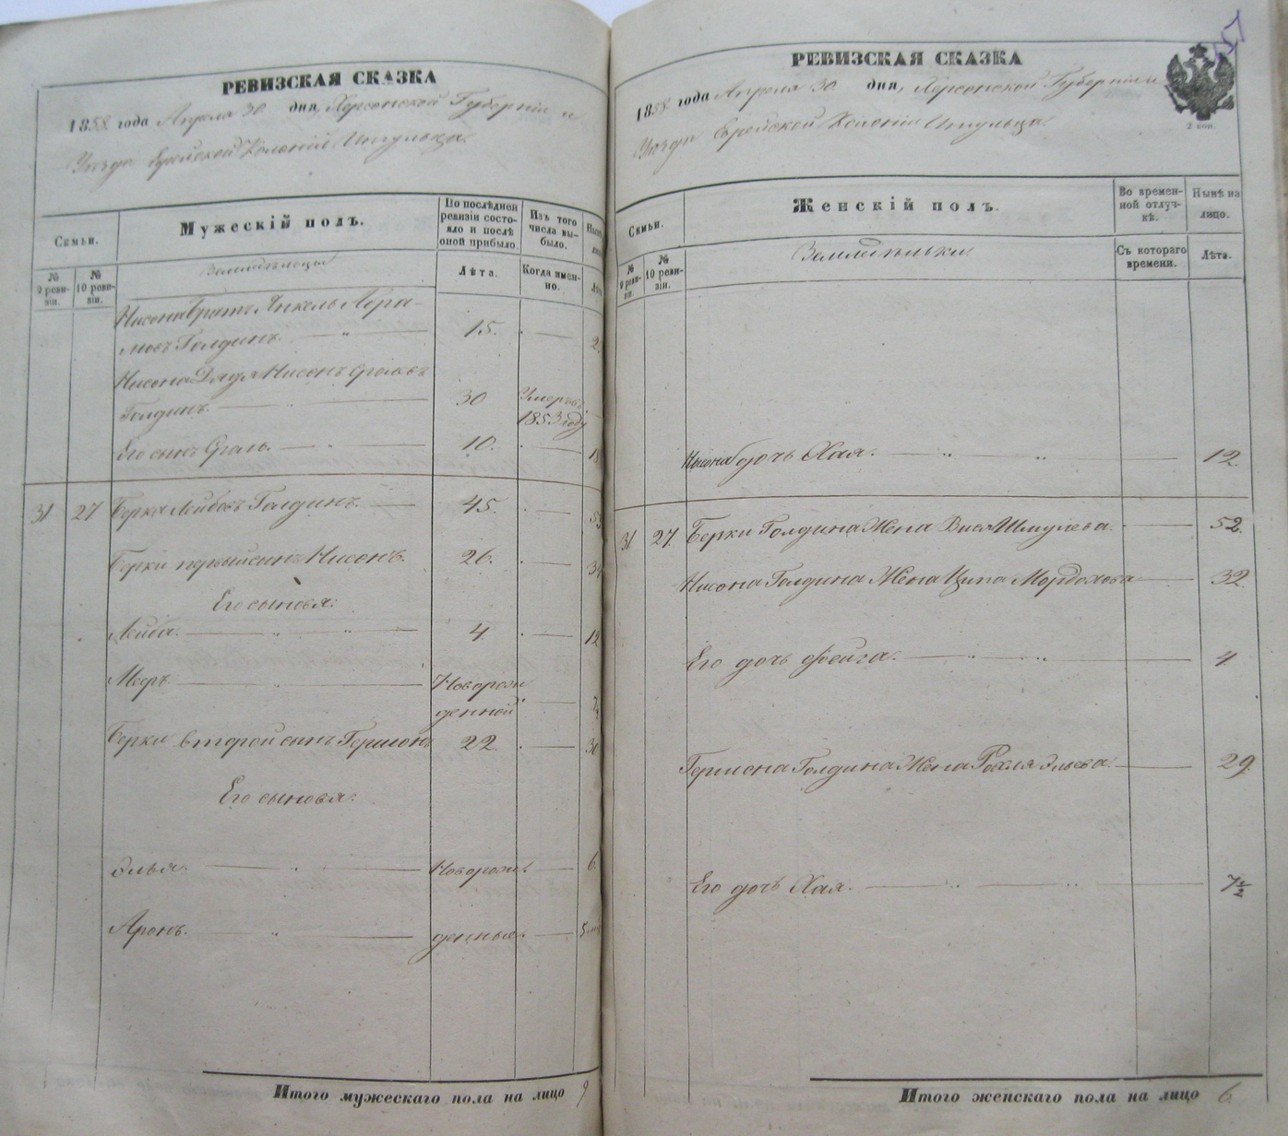 РЕВИЗСКАЯ СКАЗКА
1858 года Апреля 30 дня, Херсонской Губерніи и
Уѣзда Еврейской Колоніи Ингульца.
Семьи.
Мужескій полъ.
По послѣдней ревизіи состояло и послѣ оной прибыло.
Изъ того числа выбыло.
№ 9 ревизіи.
№ 10 ревизіи.
Земледѣльцы
Лѣта.
Когда именно.
Нисона братъ Янкель Абра-
мовъ Голдинъ. 15.
Нисона Дядя Нисонъ Сролевъ
Голдинъ. 30 Умеръ въ 1853 году
Его сынъ Сроль. 10.
31 27 Берка Лейбовъ Голдинъ. 45.
Берки первый сынъ Нисонъ. 26.
Его сыновья:
Лейба. 4. 12
Мееръ. Новорожденной
Берки второй сынъ Гершонъ 22. 30
Его сыновья:
Элья. Новорож- 6
Аронъ. денные.
Итого мужескаго пола на лицо 9
РЕВИЗСКАЯ СКАЗКА
1858 года Апреля 30 дня, Херсонской Губерніи и
Уѣзда Еврейской Колоніи Ингульца.
2 коп.
Семьи.
Женскій полъ.
Во временной отлучкѣ.
Нынѣ на лицо.
№ 9 ревизіи.
№ 10 ревизіи.
Земледѣльки
Съ котораго времени.
Лѣта.
Нисона дочь Хая. 12.
31 27. Берки Голдина Жена Шмулева. 52.
Нисона Голдина Жена Ципа Мордохова 32
Его дочь Фейга. 4
Гершона Голдина Жена Рохля Эльева. 29.
Его дочь Хая. 7½
Итого женскаго пола на лицо 6.